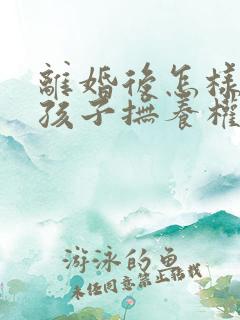 離婚後怎樣
孩子撫養權
游泳的魚
未任同意禁止移載